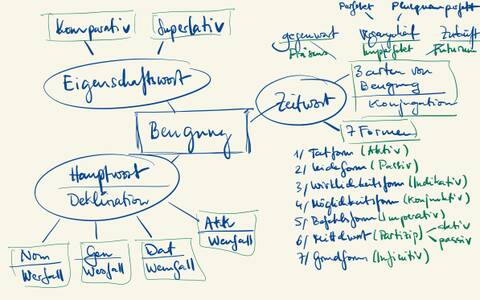 Komparativ
Superlativ
Eigenschaftswort
Beugung
Zeitwort
Perfekt
Plusquamperfekt
gegenwart
Präsens
Imperfekt
Zukunft
Futurum
3 arten von
Beugung
Konjugation
7 Formen
1/ Tatform (Aktiv)
2/ Leideform (Passiv)
3/ Wirklichkeitsform (Indikativ)
4/ Möglichkeitsform (Konjunktiv)
5/ Befehlsform (Imperativ)
6/ Mittelwort (Partizip)
aktiv
passiv
7/ Grundform (Infinitiv)
Hauptwort
Deklination
Nom
Werfall
Gen
Wesfall
Dat
Wemfall
Akk
Wenfall